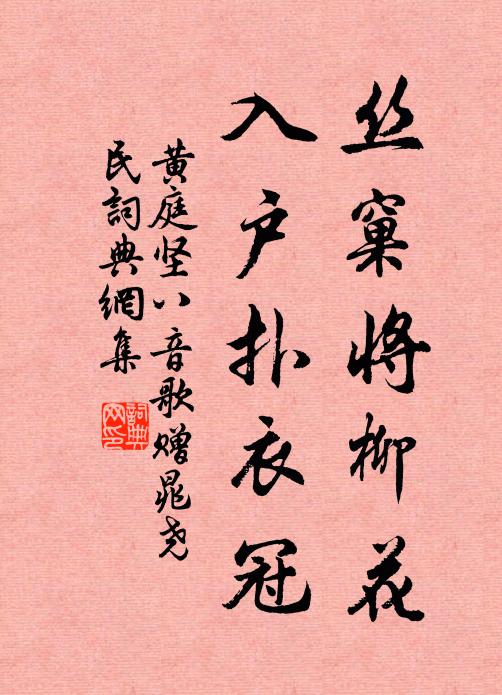 丝窠将柳花
入户扑衣冠
黄庭坚八音歌赠晁尧
民詞典網集
詞典网印